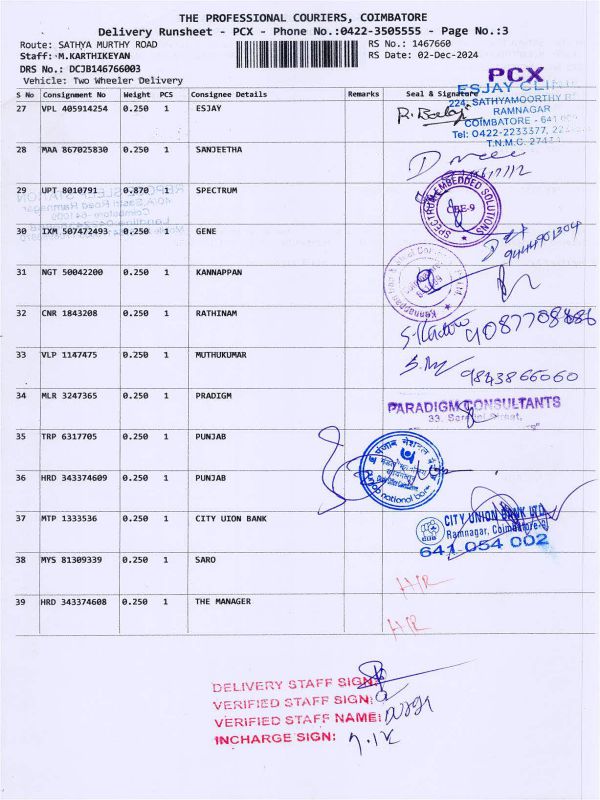 THE PROFESSIONAL COURIERS, COIMBATORE
Delivery Runsheet - PCX - Phone No.:0422-3505555 - Page No.:3
Route: SATHYA MURTHY ROAD RS No.: 1467660
Staff: M.KARTHIKEYAN RS Date: 02-Dec-2024
DRS No.: DCJB146766003
Vehicle: Two Wheeler Delivery
PCX
S No Consignment No Weight PCS Consignee Details Remarks Seal & Signature
ESJAY CLINIC
27 VPL 405914254 0.250 1 ESJAY
224, SATHYAMOORTHY
RAMNAGAR
COIMBATORE - 641
Tel: 0422-2233377,
T.N.M.C.
28 MAA 867025830 0.250 1 SANJEETHA
29 UPT 8010791 0.870 1 SPECTRUM
SPECTRUM EMBEDDED SOLUTIONS
CBE-9
30 IXM 507472493 0.250 1 GENE
9444901304
31 NGT 50042200 0.250 1 KANNAPPAN
32 CNR 1843208 0.250 1 RATHINAM
9087708686
33 VLP 1147475 0.250 1 MUTHUKUMAR
9843866060
34 MLR 3247365 0.250 1 PRADIGM
PARADIGM CONSULTANTS
35 TRP 6317705 0.250 1 PUNJAB
पंजाब नैशनल बैंक
Punjab national bank
36 HRD 343374609 0.250 1 PUNJAB
37 MTP 1333536 0.250 1 CITY UION BANK
CITY UNION BANK LTD.
Ramnagar, Coimbatore-9
641 054 002
38 MYS 81309339 0.250 1 SARO
H/R
39 HRD 343374608 0.250 1 THE MANAGER
H/R
DELIVERY STAFF SIGN:
VERIFIED STAFF SIGN:
VERIFIED STAFF NAME:
INCHARGE SIGN: